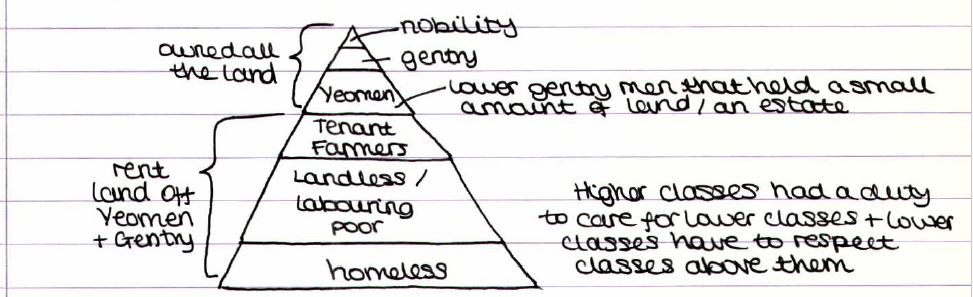 nobility
gentry
owned all
the land
Yeomen
Lower gentry men that held a small
amount of land / an estate
Tenant
Farmers
rent
land off
Yeomen
+ Gentry
Landless /
labouring
poor
homeless
Higher classes had a duty
to care for lower classes + lower
classes have to respect
classes above them